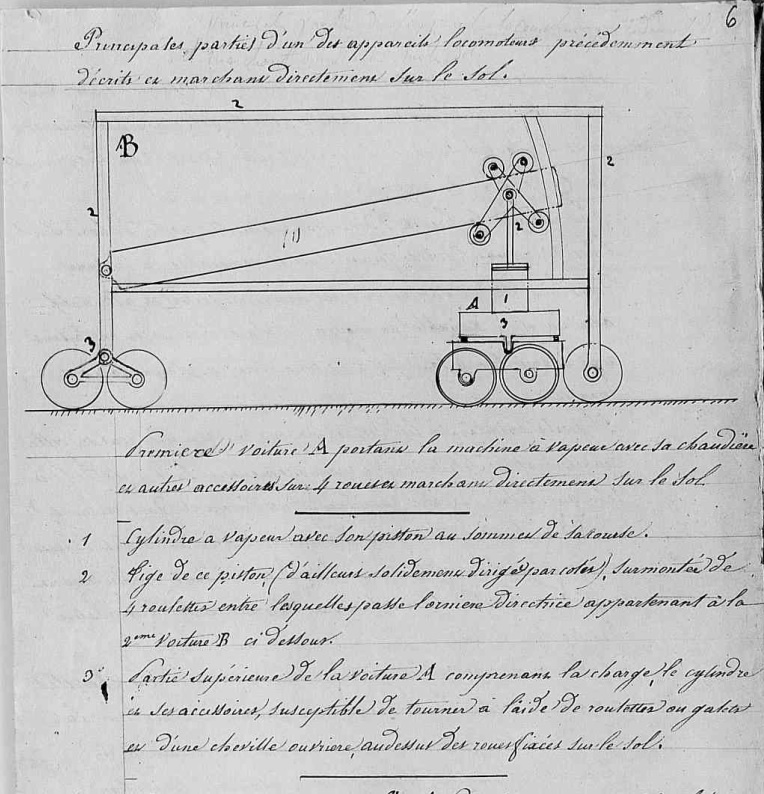 6
Principales parties d'un des appareils locomoteurs précédemment
décrits et marchant directement sur le sol.
2
B
2
2
(1)
2
A
1
3
3
Premiere voiture A portant la machine à vapeur avec sa chaudière
et autres accessoires sur 4 roues et marchant directement sur le sol.
1 Cylindre a vapeur avec son piston au sommet de sa course.
2 Tige de ce piston (d'ailleurs solidement dirigé par cotés), surmontée de
4 roulettes entre lesquelles passe l'orniere directrice appartenant à la
2eme voiture B ci dessous.
3° Partie supérieure de la voiture A comprenant la charge, le cylindre
et ses accessoires, susceptible de tourner à l'aide de roulettes ou galets
et d'une cheville ouvriere, au dessus des roues fixées sur le sol.